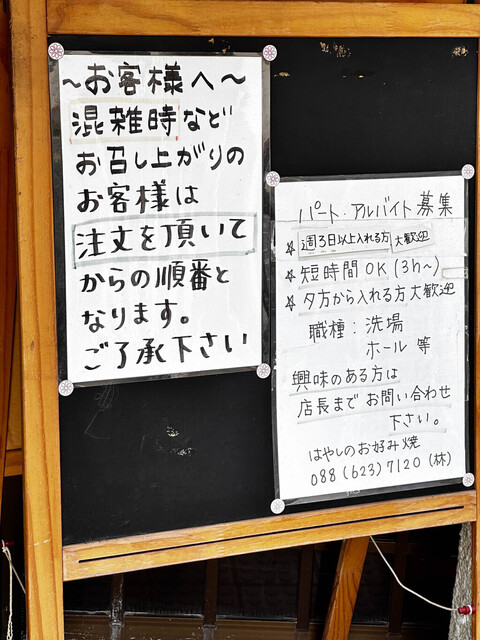 ～お客様へ～
混雑時など
お召し上がりの
お客様は
注文を頂いて
からの順番と
なります。
ご了承下さい
パート・アルバイト募集
☆週3日以上入れる方大歓迎
☆短時間OK(3h～)
☆夕方から入れる方大歓迎
職種：洗場
ホール 等
興味のある方は
店長まで お問い合わせ
下さい。
はやしのお好み焼
088(623)7120(林)